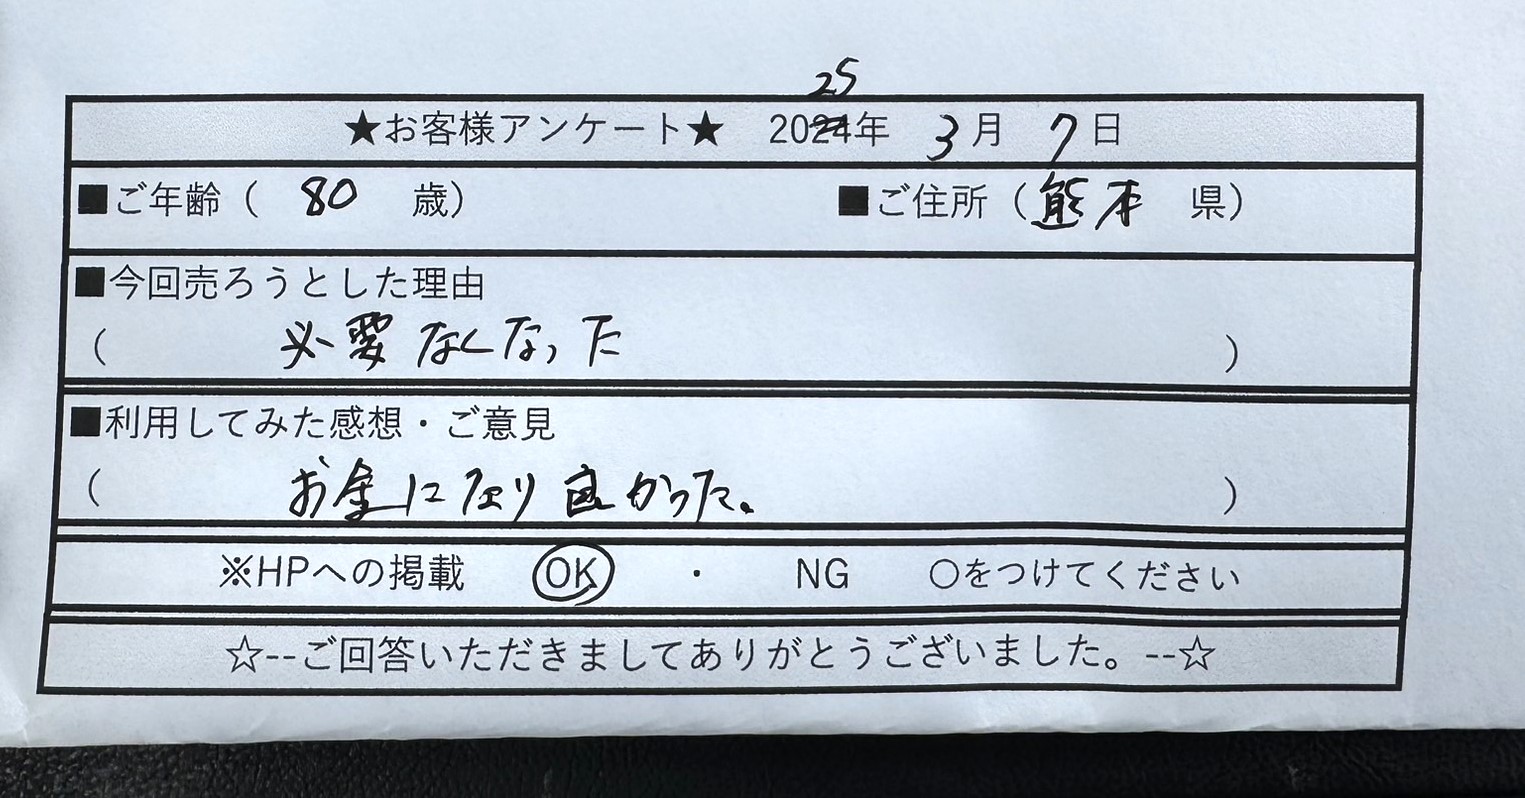 25
★お客様アンケート★ 2024年 3月 7日
■ご年齢( 80 歳) ■ご住所(熊本 県)
■今回売ろうとした理由
( 必要なくなった )
■利用してみた感想・ご意見
( お金になり良かった。 )
※HPへの掲載 OK ・ NG ○をつけてください
☆--ご回答いただきましてありがとうございました。--☆